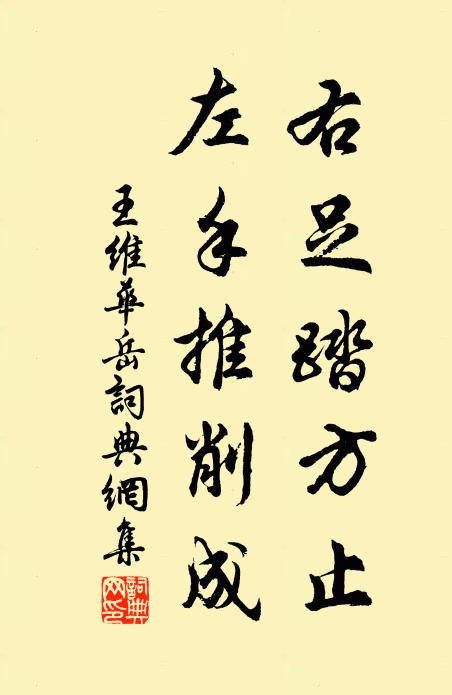 右足踏方止
左手推削成
王維華岳詞典網集
詞典
网印